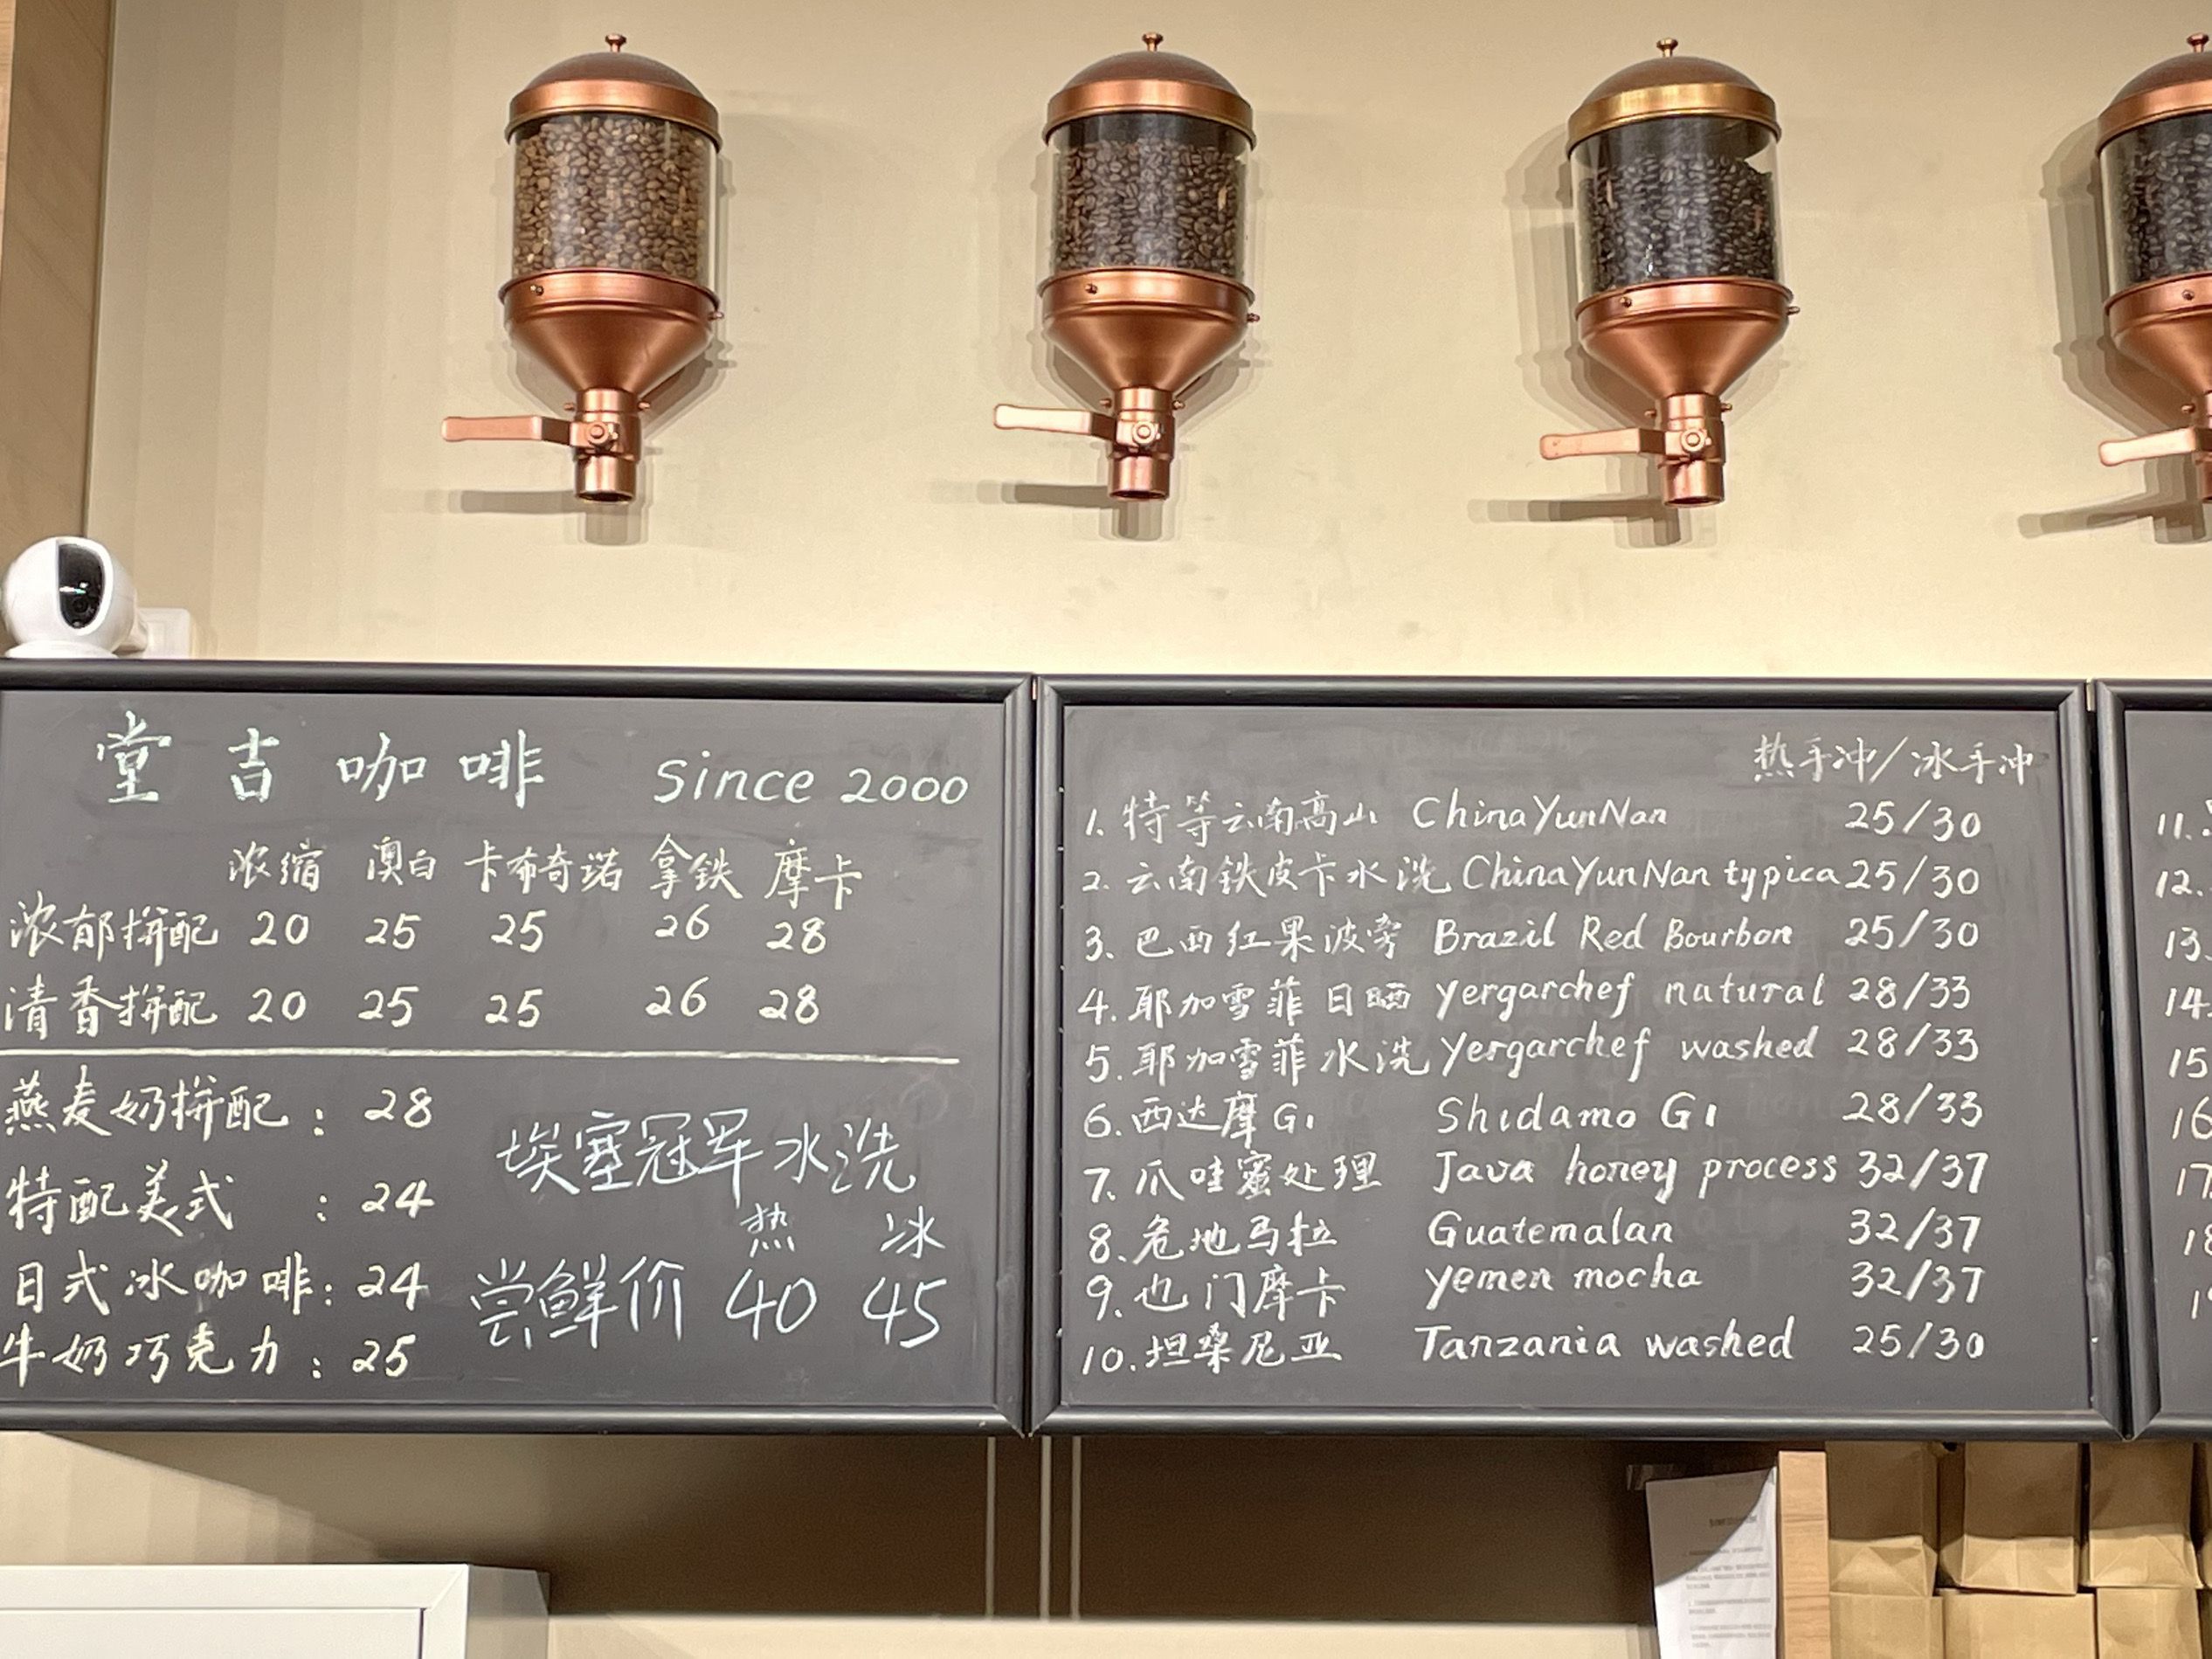 堂吉咖啡 since 2000
浓缩 澳白 卡布奇诺 拿铁 摩卡
浓郁拼配 20 25 25 26 28
清香拼配 20 25 25 26 28
燕麦奶拼配：28
特配美式：24
日式冰咖啡：24
牛奶巧克力：25
埃塞冠军水洗
热 冰
尝鲜价 40 45
热手冲/冰手冲
1. 特等云南高山 ChinaYunNan 25/30
2. 云南铁皮卡水洗 ChinaYunNan typica 25/30
3. 巴西红果波旁 Brazil Red Bourbon 25/30
4. 耶加雪菲日晒 yergarchef natural 28/33
5. 耶加雪菲水洗 yergarchef washed 28/33
6. 西达摩G1 Shidamo G1 28/33
7. 爪哇蜜处理 Java honey process 32/37
8. 危地马拉 Guatemalan 32/37
9. 也门摩卡 yemen mocha 32/37
10. 坦桑尼亚 Tanzania washed 25/30
11.
12.
13.
14.
15
16
17
18